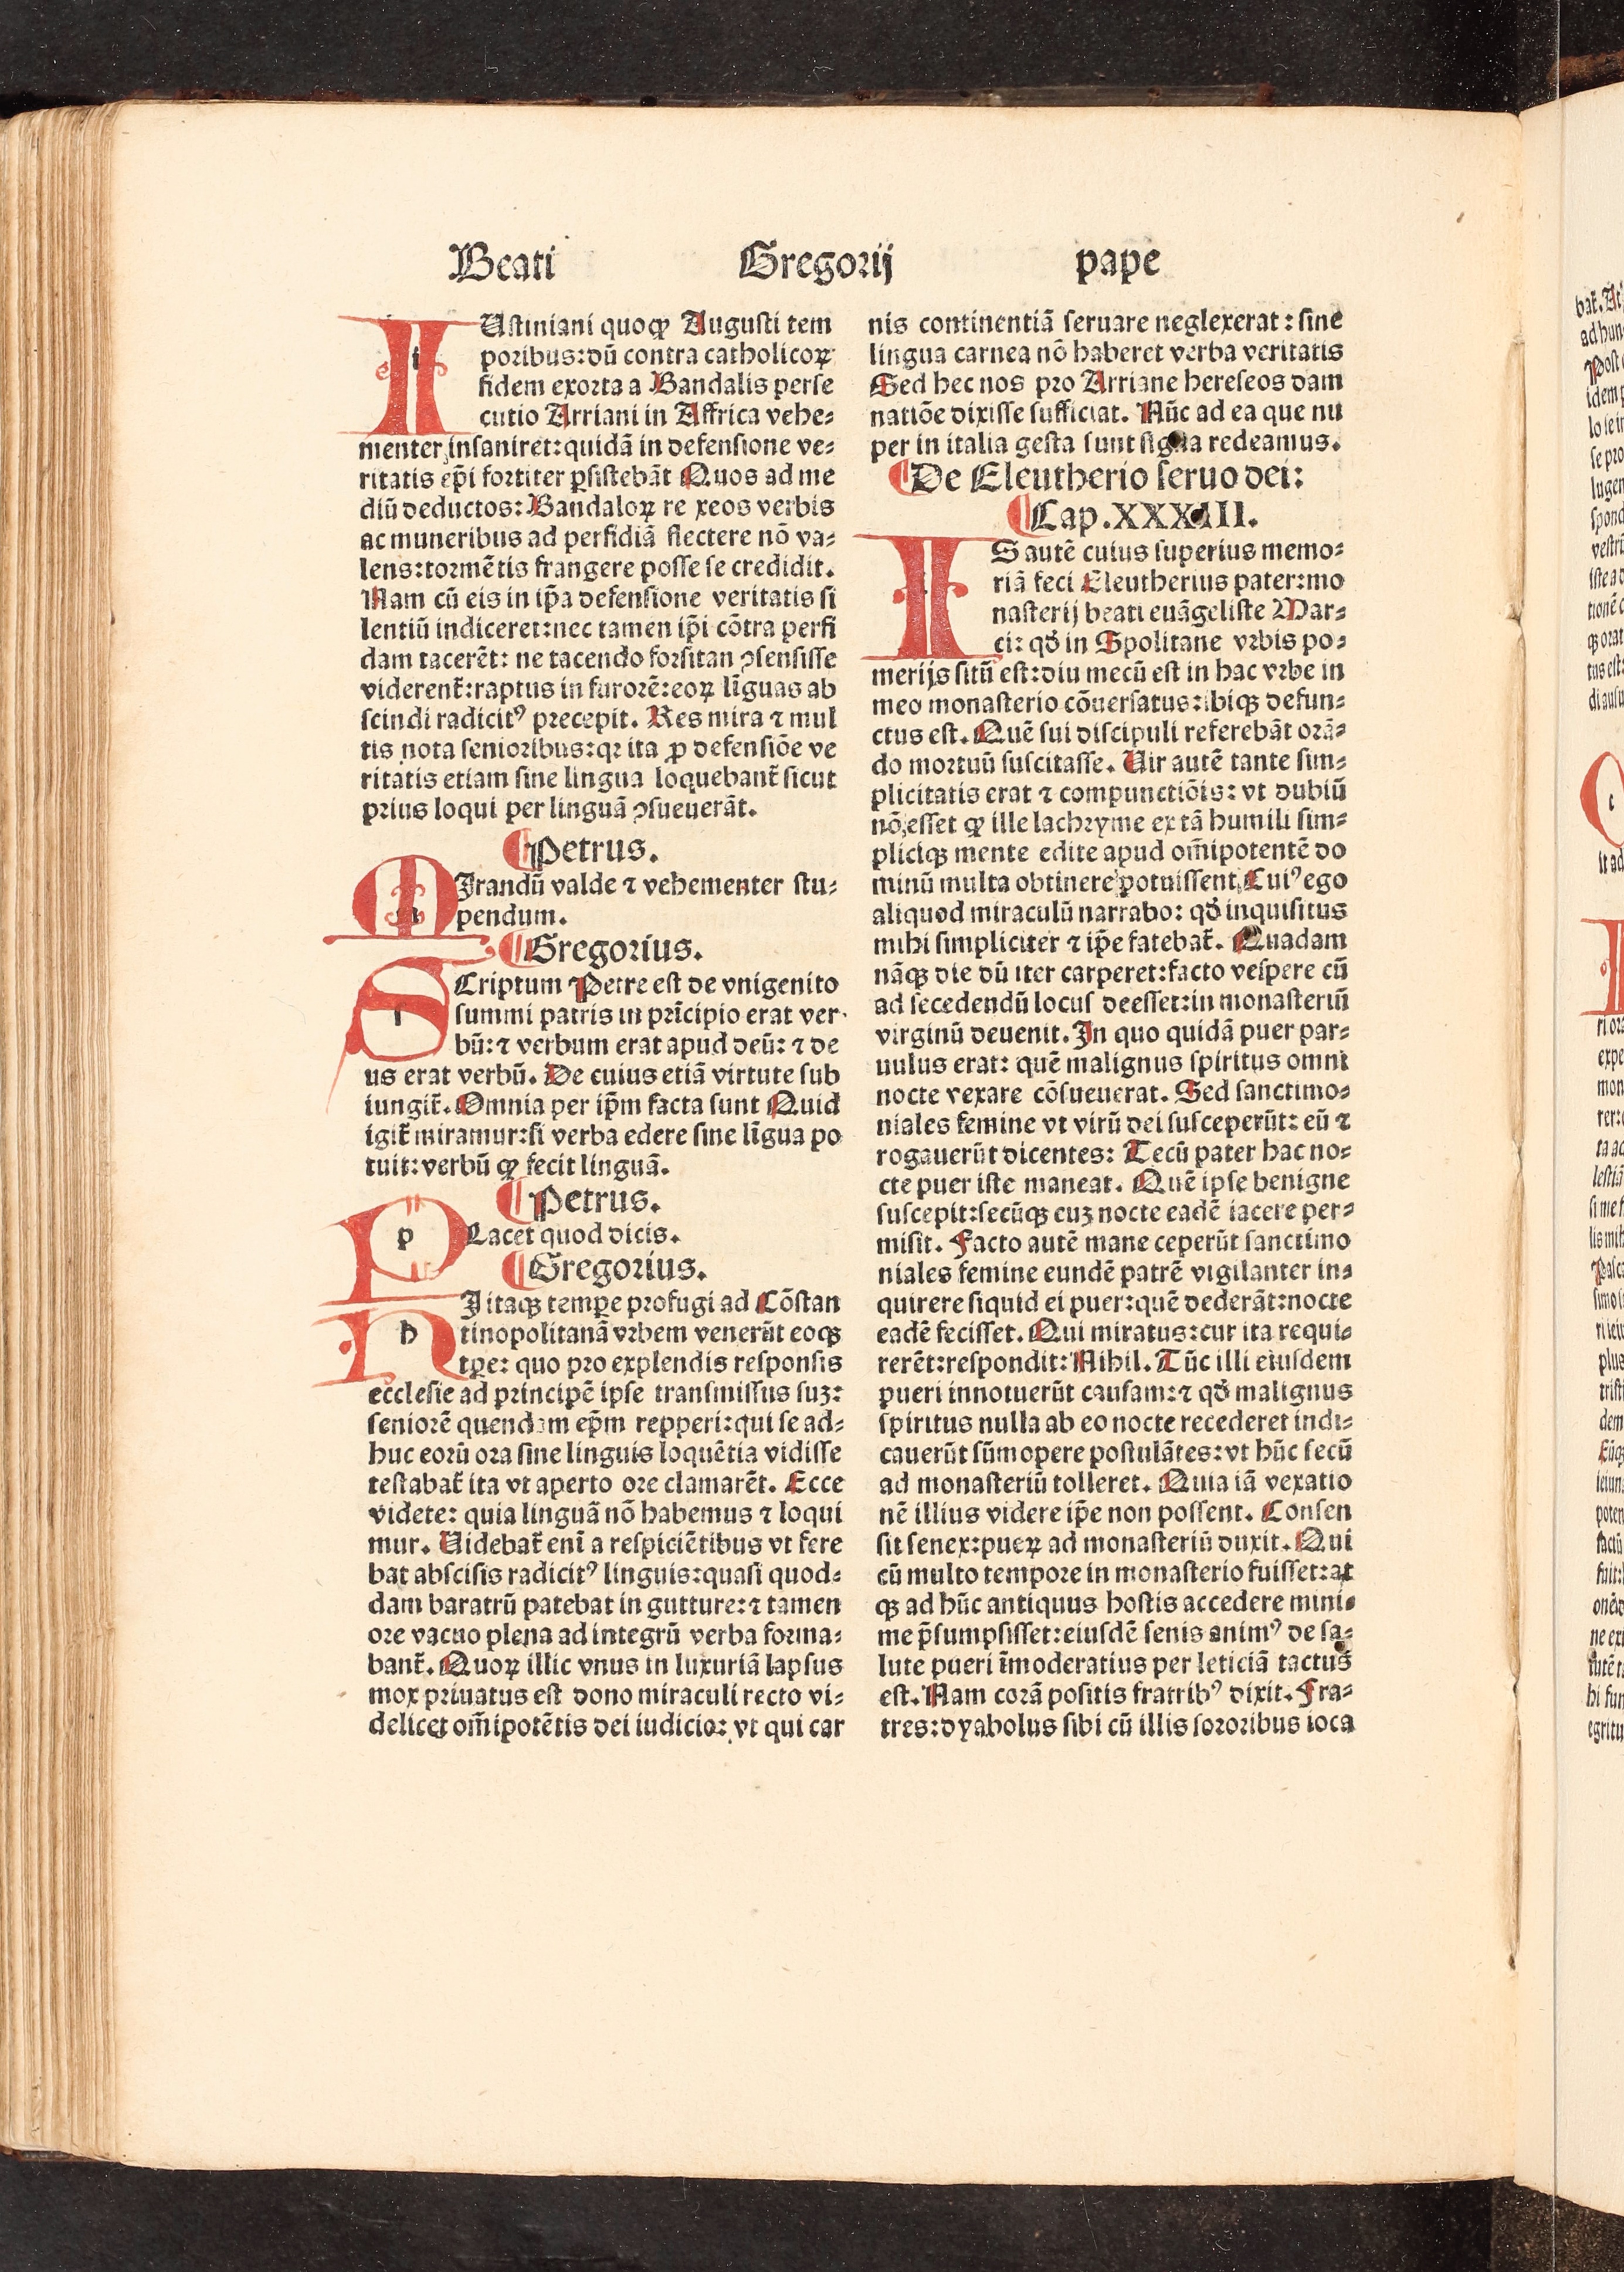 Beati Gregorij pape
IUstiniani quoqꝫ Augusti tem
poribus: dū contra catholicoꝝ
fidem exorta a Vandalis perse
cutio Arriani in Affrica vehe-
menter insaniret: quidā in defensione ve-
ritatis ep̄i fortiter ꝑsistebāt Quos ad me
diū deductos: Vandaloꝝ re xeos verbis
ac muneribus ad perfidiā flectere nō va-
lens: tormētis frangere posse se credidit.
Nam cū eis in ip̄a defensione veritatis si
lentiū indiceret: nec tamen ip̄i cōtra perfi
dam tacerēt: ne tacendo forsitan ꝯsensisse
viderent̄: raptus in furorē: eoꝝ līguas ab
scindi radicitꝰ precepit. Res mira ⁊ mul
tis nota senioribus: qꝛ ita ꝓ defensiōe ve
ritatis etiam sine lingua loquebant̄ sicut
prius loqui per linguā ꝯsueuerāt.
¶Petrus.
MIrandū valde ⁊ vehementer stu-
pendum.
¶Gregorius.
SCriptum Petre est de vnigenito
summi patris in prīcipio erat ver-
bū: ⁊ verbum erat apud deū: ⁊ de
us erat verbū. De cuius etiā virtute sub
iungit̄. Omnia per ip̄m facta sunt Quid
igit̄ miramur: si verba edere sine līgua po
tuit: verbū qꝫ fecit linguā.
¶Petrus.
PLacet quod dicis.
¶Gregorius.
HIi itaqꝫ tempe profugi ad Cōstan
tinopolitanā vrbem venerūt eoqꝫ
tꝑe: quo pro explendis responsis
ecclesie ad principē ipse transmissus suꝫ:
seniorē quendam ep̄m repperi: qui se ad-
huc eorū ora sine linguis loquētia vidisse
testabat̄ ita vt aperto ore clamarēt. Ecce
videte: quia linguā nō habemus ⁊ loqui
mur. Videbat̄ enī a respiciētibus vt fere
bat abscisis radicitꝰ linguis: quasi quod-
dam baratrū patebat in gutture: ⁊ tamen
ore vacuo plena ad integrū verba forma-
bant̄. Quoꝝ illic vnus in luxuriā lapsus
mox priuatus est dono miraculi recto vi-
delicet om̄ipotētis dei iudicio: vt qui car
nis continentiā seruare neglexerat: sine
lingua carnea nō haberet verba veritatis
Sed hec nos pro Arriane hereseos dam
natiōe dixisse sufficiat. Nūc ad ea que nu
per in italia gesta sunt signa redeamus.
¶De Eleutherio seruo dei:
¶Cap.XXXIII.
IS autē cuius superius memo-
riā feci Eleutherius pater: mo
nasterij beati euāgeliste Mar-
ci: qđ in Spolitane vrbis po-
merijs sitū est: diu mecū est in hac vrbe in
meo monasterio cōuersatus: ibiqꝫ defun-
ctus est. Quē sui discipuli referebāt orā-
do mortuū suscitasse. Vir autē tante sim-
plicitatis erat ⁊ compunctiōis: vt dubiū
nō esset qꝫ ille lachryme ex tā humili sim-
pliciqꝫ mente edite apud om̄ipotentē do
minū multa obtinere potuissent. Cuiꝰ ego
aliquod miraculū narrabo: qđ inquisitus
mihi simpliciter ⁊ ip̄e fatebat̄. Quadam
nāqꝫ die dū iter carperet: facto vespere cū
ad secedendū locus deesset: in monasteriū
virginū deuenit. In quo quidā puer par-
uulus erat: quē malignus spiritus omni
nocte vexare cōsueuerat. Sed sanctimo-
niales femine vt virū dei susceperūt: eū ⁊
rogauerūt dicentes: Tecū pater hac no-
cte puer iste maneat. Quē ipse benigne
suscepit: secūqꝫ cuꝫ nocte eadē iacere per-
misit. Facto autē mane ceperūt sanctimo
niales femine eundē patrē vigilanter in-
quirere siquid ei puer: quē dederāt: nocte
eadē fecisset. Qui miratus: cur ita requi-
rerēt: respondit: Nihil. Tūc illi eiusdem
pueri innotuerūt causam: ⁊ qđ malignus
spiritus nulla ab eo nocte recederet indi-
cauerūt sūmopere postulātes: vt hūc secū
ad monasteriū tolleret. Quia iā vexatio
nē illius videre ip̄e non possent. Consen
sit senex: pueꝝ ad monasteriū duxit. Qui
cū multo tempore in monasterio fuisset: at
qꝫ ad hūc antiquus hostis accedere mini-
me p̄sumpsisset: eiusdē senis animꝰ de sa-
lute pueri īmoderatius per leticiā tactus
est. Nam corā positis fratribꝰ dixit. Fra-
tres: dyabolus sibi cū illis sororibus ioca